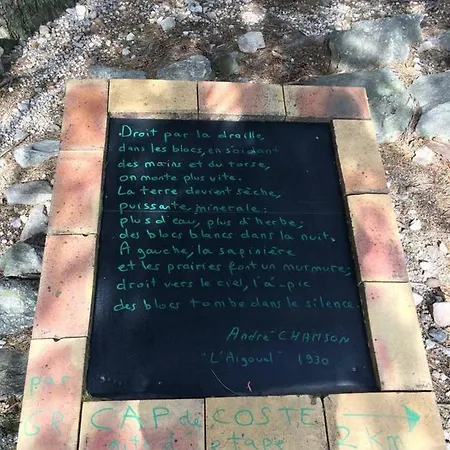 Droit par la draille,
dans les blocs, en s'aidant
des mains et du torse,
on monte plus vite.
La terre devient sèche,
puissante, minerale:
plus d'eau, plus d'herbe,
des blocs blancs dans la nuit.
A gauche, la sapinière
et les prairies font un murmure,
droit vers le ciel, l'à-pic
des blocs tombe dans le silence.
André CHAMSON
"L'Aigoual" 1930
par
GR CAP de COSTE
etape 2 km